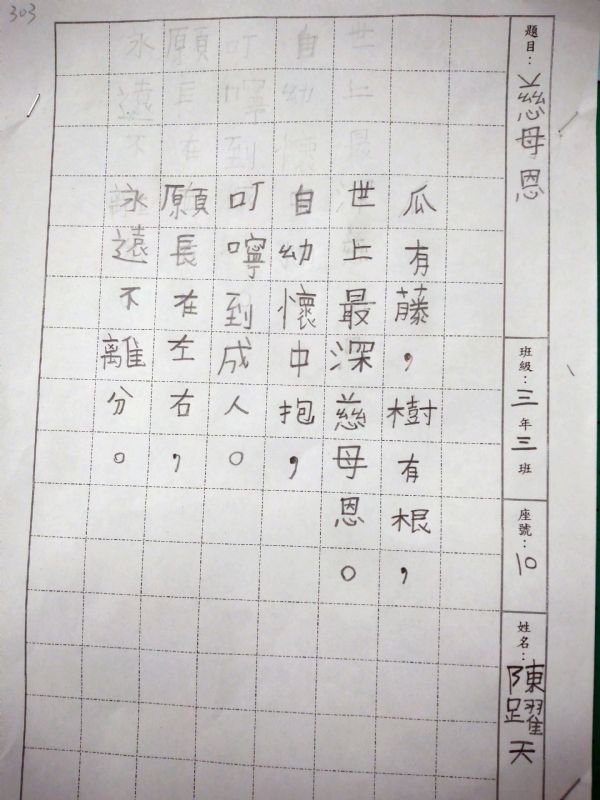 303
題目：慈母恩
班級：三年三班
座號：10
姓名：陳躍天
瓜有藤，樹有根，
世上最深慈母恩。
自幼懷中抱，
叮嚀到成人。
願長在左右，
永遠不離分。